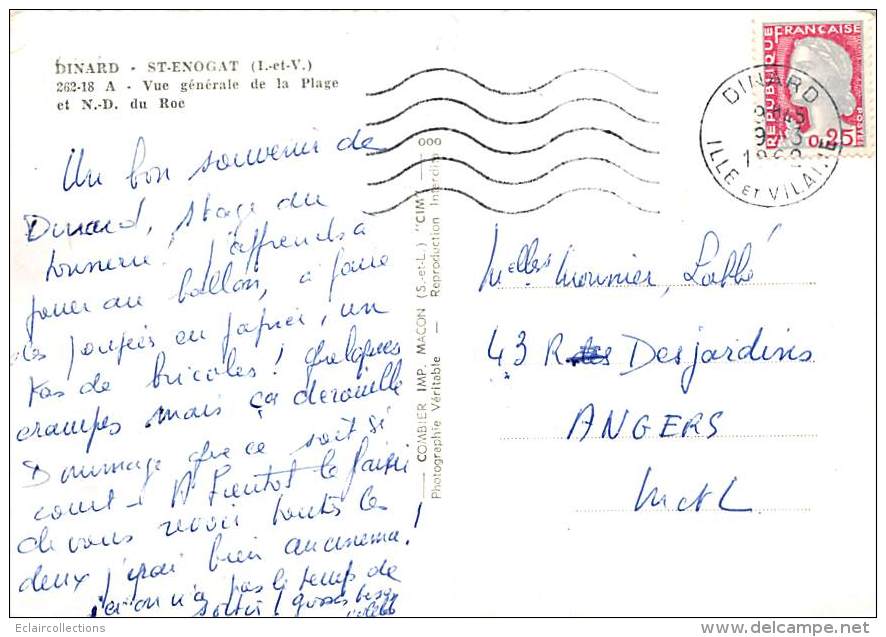 DINARD - ST-ENOGAT (I.-et-V.)
262-18 A - Vue générale de la Plage
et N.-D. du Roc
Un bon souvenir de
Dinard, stage du
tonnerre! J'apprends à
jouer au ballon, à faire
des poupées en papier, un
tas de bricoles! Quelques
crampes mais ça dérouille
Dommage que ce soit si
court - A bientôt le plaisir
de vous revoir toutes les
deux j'irai bien au cinéma!
ici on n'a pas le temps de
sortir! grosses bises
COMBIER IMP. MACON (S.-et-L.) "CIM"
Photographie Véritable - Reproduction Interdite
REPUBLIQUE FRANÇAISE
POSTES
0,25
DINARD
9H45
9-3
ILLE et VILAINE
Melles Mounier, Labbé
43 R Desjardins
ANGERS
M et L
Eclaircollections
www.delcampe.net